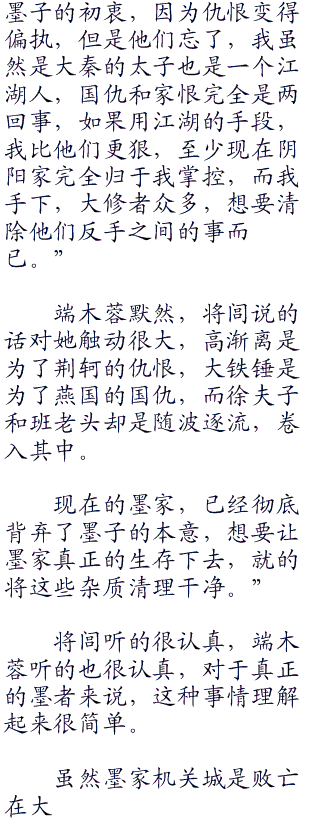 墨子的初衷，因为仇恨变得
偏执，但是他们忘了，我虽
然是大秦的太子也是一个江
湖人，国仇和家恨完全是两
回事，如果用江湖的手段，
我比他们更狠，至少现在阴
阳家完全归于我掌控，而我
手下，大修者众多，想要清
除他们反手之间的事而
已。”
端木蓉默然，将闾说的
话对她触动很大，高渐离是
为了荆轲的仇恨，大铁锤是
为了燕国的国仇，而徐夫子
和班老头却是随波逐流，卷
入其中。
现在的墨家，已经彻底
背弃了墨子的本意，想要让
墨家真正的生存下去，就的
将这些杂质清理干净。”
将闾听的很认真，端木
蓉听的也很认真，对于真正
的墨者来说，这种事情理解
起来很简单。
虽然墨家机关城是败亡
在大